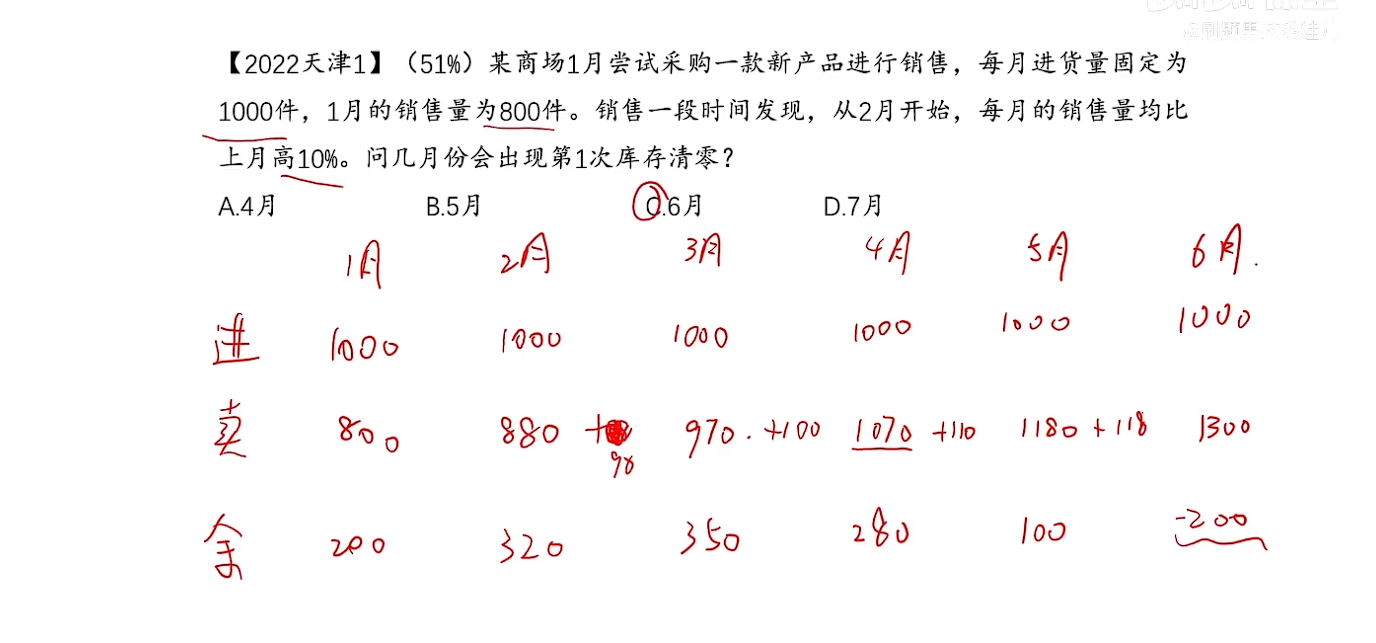 【2022天津1】（51%）某商场1月尝试采购一款新产品进行销售，每月进货量固定为
1000件，1月的销售量为800件。销售一段时间发现，从2月开始，每月的销售量均比
上月高10%。问几月份会出现第1次库存清零？
A.4月 B.5月 C.6月 D.7月
1月 2月 3月 4月 5月 6月.
进 1000 1000 1000 1000 1000 1000
卖 800 880 + 970. +100 1070 +110 1180 +118 1300
90
余 200 320 350 280 100 -200